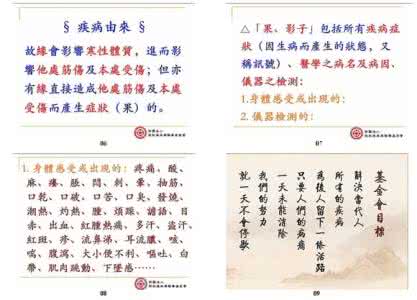 § 疾病由來 §
故緣會影響寒性體質，進而影
響他處筋傷及本處受傷；但亦
有緣直接造成他處筋傷及本處
受傷而產生症狀（果）的。
06
△「果、影子」包括所有疾病症
狀（因生病而產生的狀態，又
稱訊號）、醫學之病名及病因、
儀器之檢測：
1.身體感受或出現的：
2.儀器檢測的：
07
1.身體感受或出現的：疼痛、酸、
麻、癢、脹、悶、刺、暈、抽筋、
口乾、口破、口苦、口臭、發燒、
潮熱、灼熱、腫、煩躁、譫語、目
赤、出血、紅腫熱痛、多汗、盜汗、
紅斑、疹、流鼻涕、耳流膿、咳、
喘、腹瀉、大小便不利、嘔吐、白
帶、肌肉跳動、下墜感……
08
基金會目標
解決當代人
所有的疾病
為後人留下一條活路
只要人們的病痛
一天未能消除
我們的努力
就一天不會停歇
09